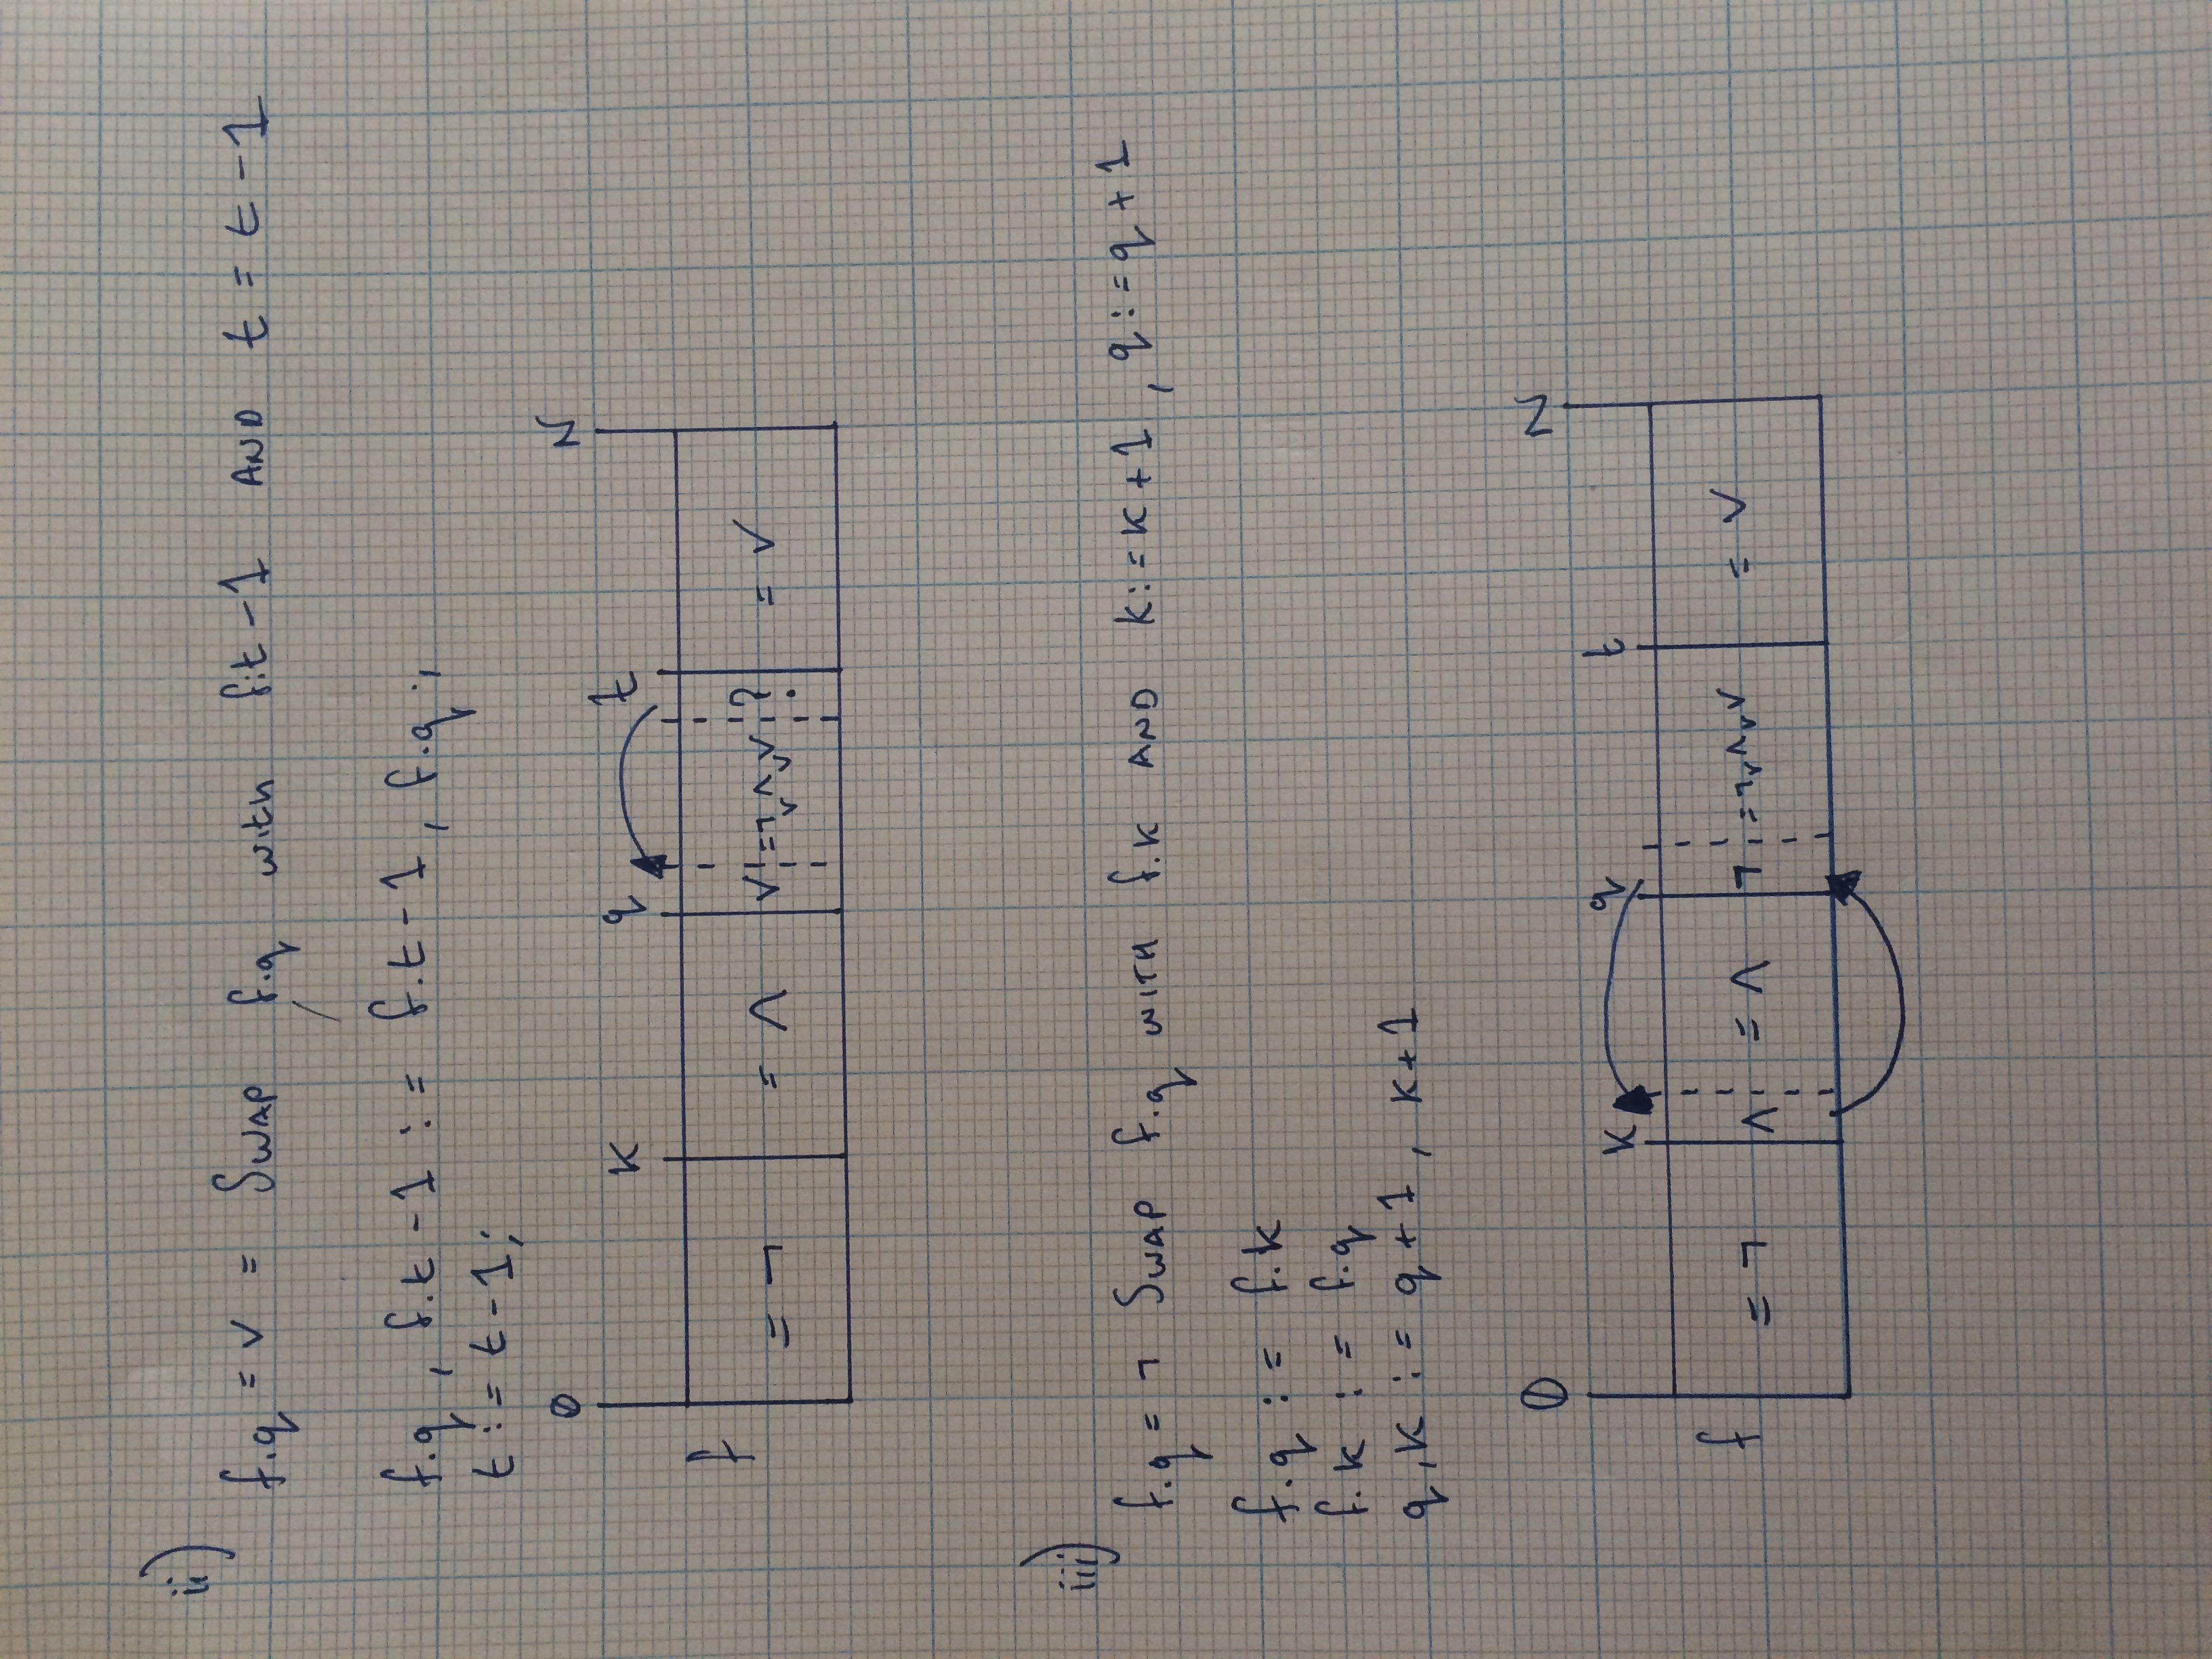 ii)
f.q = ∨ = Swap f.q with f.t - 1 AND t = t - 1
f.q , f.t - 1 := f.t - 1 , f.q ;
t := t - 1 ;
0 N
k q t
f = ¬ = ∧ ∨ = ¬ ∨ ∧ ∨ ∨ ? = ∨
iii)
f.q = ¬ Swap f.q WITH f.k AND k := k + 1 , q := q + 1
f.q := f.k
f.k := f.q
q , k := q + 1 , k + 1
0 N
k q t
f = ¬ ∧ = ∧ ¬ = ¬ ∨ ∧ ∨ ∨ = ∨